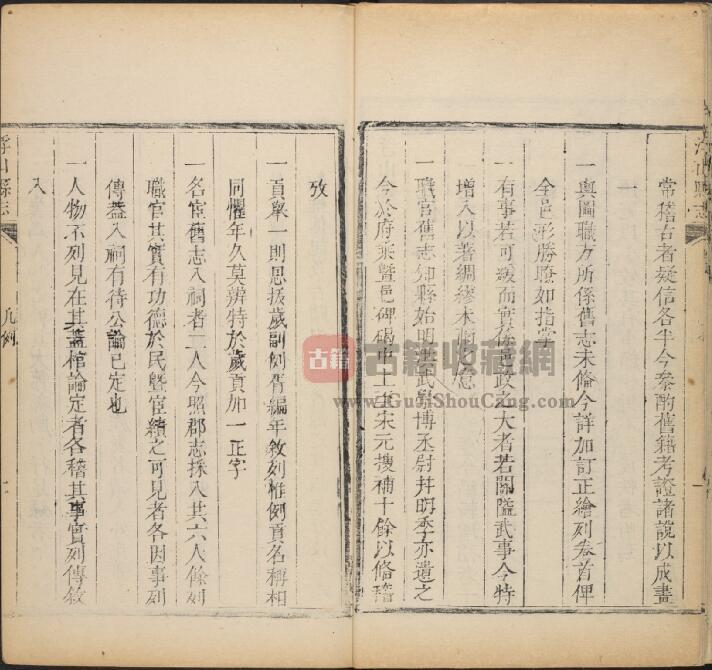 常稽古者疑信各半今叅酌舊籍考證諸說以成畫
一
一輿圖職方所係舊志未俻今詳加訂正繪列卷首俾
全邑形勝瞭如指掌
一有事若可緩而實係邑政之大者若關隘武事今特
增入以著綢繆木
一職官舊志知縣始明洪武劉博丞尉幷明季亦遺之
今於府乘暨邑碑碣由上至宋元搜補十餘以俻稽
攷
一貢舉一則恩拔歲副例胥編年敘列惟例貢名稱相
同懼年久莫辨特於歲貢加一正字
一名宦舊志入祠者二人今照郡志採入共六人餘列
職官其實有功德於民暨宦績之可見者各因事列
傳葢入祠有待公論已定也
一人物不列見在其蓋棺論定者各稽其事實列傳敘
入
浮山縣志
凡例
古籍收藏网
www.GuJiShouCang.com